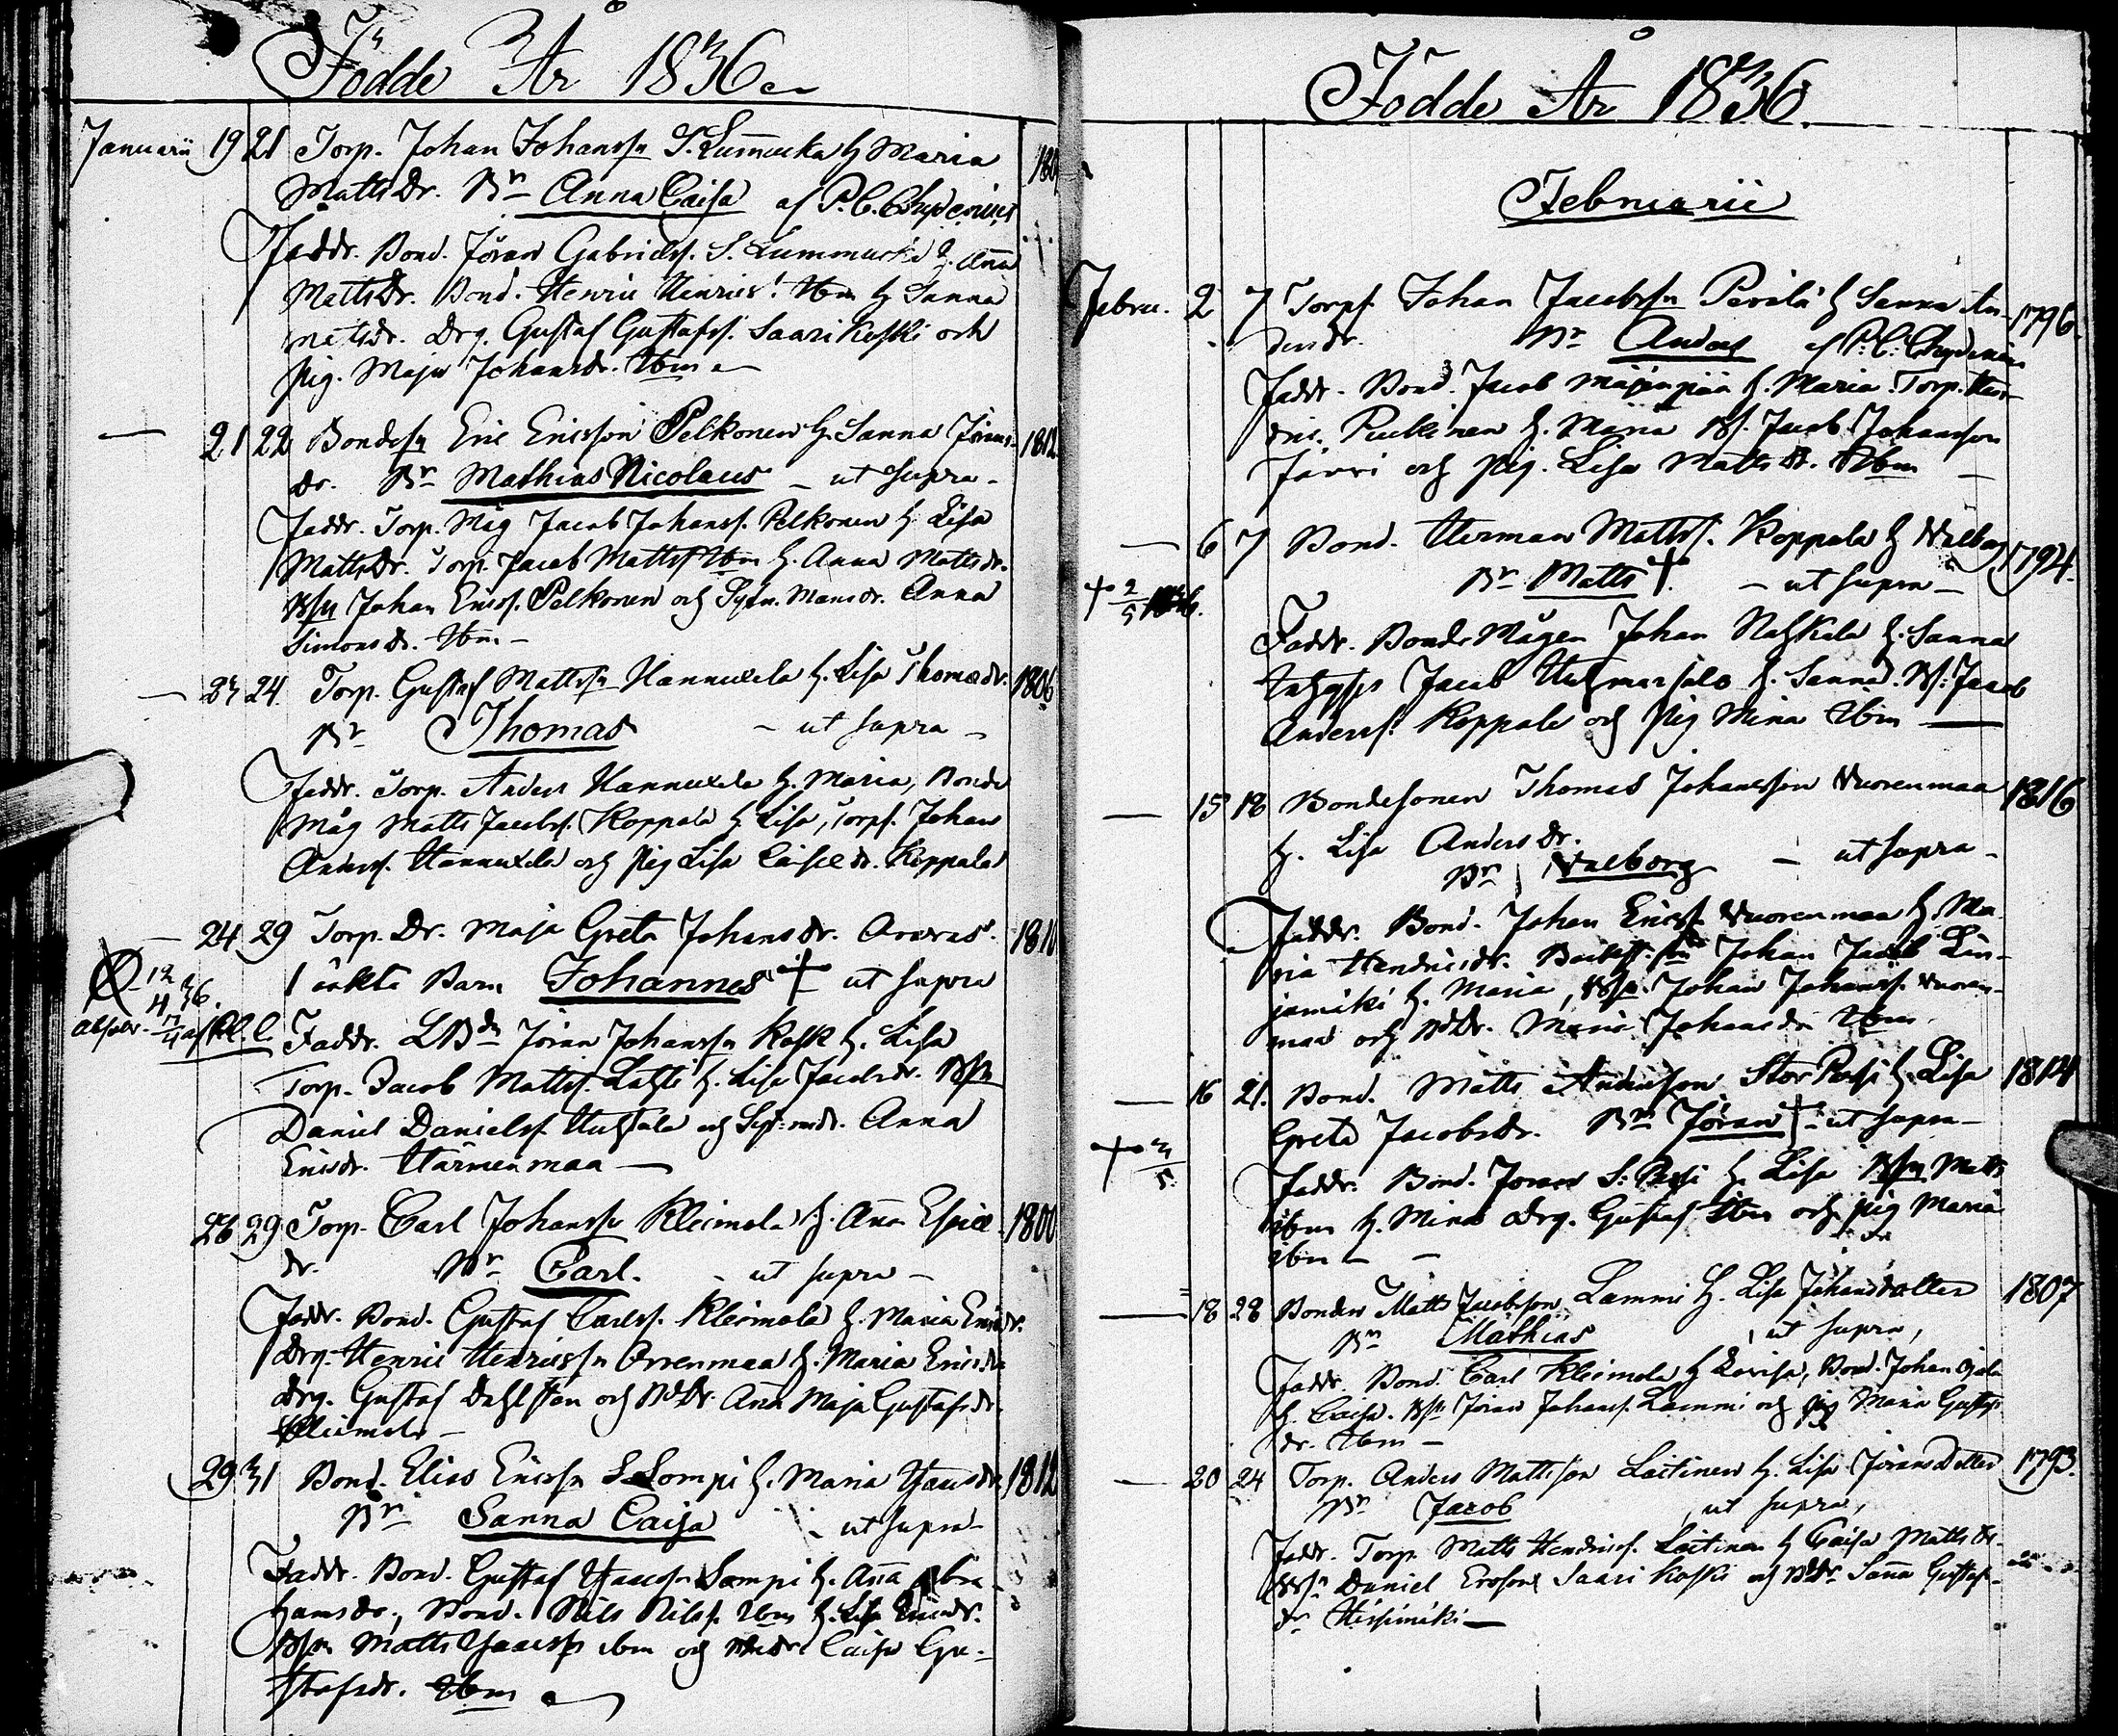 Födde År 1836
Januarii 19 21 Torp. Johan Johanss. S. Lummucka h. Maria 180
Matts Dr. Bn Anna Caisa af P. C. Chydenius
Faddr. Bond. Jöran Gabrielss. S. Lummucka h. Anna
Matts Dr. Bond. Henric Henrics. Ibm h. Sanna
Matsdr. Drg. Gustaf Gustafss. Saarikoski och
Pig. Maja Johansdr. Ibm
— 21 22 Bondesn Eric Ericsson Pelkonen h. Sanna Jörans- 1812
dr. Bn Mathias Nicolaus – ut supra –
Faddr. Torp. Måg Jacob Johanss. Pelkonen h. Lisa
Matts Dr. Torp. Jacob Mattss. Ibm h. Anna Mattsdr.
Bsn Johan Ericss. Pelkonen och Anna
Simonsdr. Ibm –
— 23 24 Torp. Gustaf Mattssn Hannuxela h. Lisa Thomædr. 1806
Bn Thomas – ut supra –
Faddr. Torp. Anders Hannuxela h. Maria, Bonde
Måg Matts Jacobss. Koppala h. Lisa, Torp. Johan
Anderss. Hannuxela och Pig Lisa Caisædr. Koppala
— 24 29 Torp. Dr. Maja Greta Johansdr. 181
12/4 36. 1 oäkta Barn Johannes † ut supra
Absolv. Faddr. Jöran Johanssn Kosk h. Lisa
Torp. Jacob Mattss. Lahti h. Lisa Jacobsdr. Bsn
Daniel Danielss. Huhtala och Anna
Ericsdr. Härmenmaa —
26 29 Torp. Carl Johanssn Kleimola h. Anna 1800
dr. Bn Carl. – ut supra –
Faddr. Bond. Gustaf Carlss. Kleimola h. Maria Ericsdr.
Drg. Henric Henricssn Orrenmaa h. Maria Ericsdr
Drg. Gustaf Dahlsten och BdDr. Anna Maja Gustafsdr.
Kleimola –
29 31 Bond. Elias Ericssn S. Lompi h. Maria 1812
Bn Sanna Caisa – ut supra –
Faddr. Bond. Gustaf Isacssn Lompi h. Anna Abra-
hamsdr., Bond. Nils Nilss. Ibm h. Lisa Ericsdr.
Bsn Matts Isacssn ibm och Caisa Gu-
stafsdr. Ibm
Födde År 1836.
Februarii
Febru. 2 7 Torp. Johan Jacobssn Perilä h. Sanna An- 1796.
dersdr. Bn Anders af P. C. Chydenius
Faddr. Bond. Jacob Mäjenpää h. Maria. Torp. Hen-
ric. Puckinen h. Maria Bs. Jacob Johansson
Järvi och Pig. Lisa Matts Dr. Ibm –
— 6 7 Bond. Herman Mattss. Koppala h. Walborg 1794.
† 2/5 Bn Matts †. – ut supra –
Faddr. Bonde Mågen Johan h. Sanna
Jacob h. Sanna. Bs. Jacob
Anderss. Koppala och Pig Mina Ibm —
— 15 18 Bondesonen Thomas Johansson Wuorenmaa 1816
h. Lisa Anders Dr.
Bn Walborg – ut supra –
Faddr. Bond. Johan Ericss. Wuorenmaa h. Ma-
ria Hendricsdr. Johan Jacob Lin-
jamäki h. Maria, Bsn. Johan Johanss. Wuoren-
maa och BdDr. Maria Johansdr. Ibm
— 16 21. Bond. Matts Andersson Stor Passi h. Lisa 1814
Greta Jacobsdr. Bn Jöran † – ut supra –
† 3/5 Faddr. Bond. Jöran S. Passi h. Lisa Bsn Matts
ibm h. Mina Drg. Gustaf Ibm och Pig Maria
ibm –
— 18 28 Bonden Matts Jacobsson Lammi h. Lisa Johansdotter 1807
Bn Mathias, ut supra,
Faddr. Bond. Carl Kleimola h. Lovisa, Bond. Johan
h. Caisa. Bsn Jöran Johanss. Lammi och Pig Maria Gustafs
dr. Ibm –
— 20 24 Torp. Anders Mattsson Laitinen h. Lisa Jörans Dotter 1793.
Bn Jacob ut supra,
Faddr. Torp. Matts Hendricss. Laitinen h. Caisa Matts dr.
Bsn Daniel Ersson Saarikoski och BdDr Sanna Gustafs-
dr —